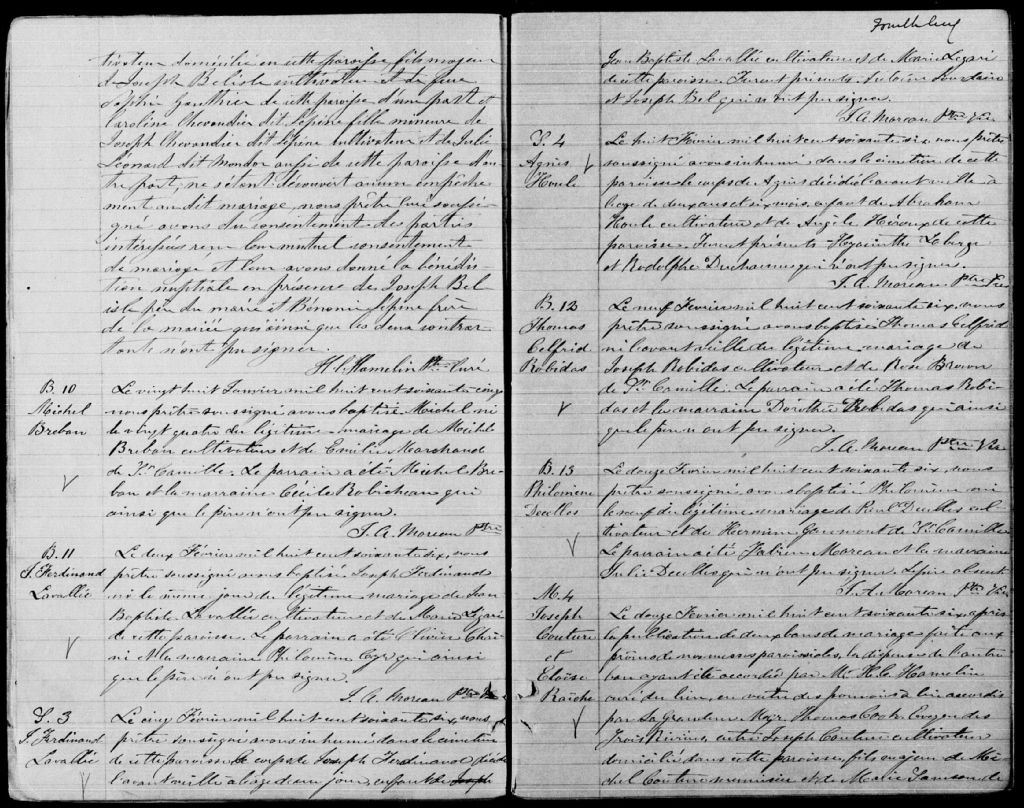 tivateur domicilié en cette paroisse fils majeur
de Joseph Belisle cultivateur et de feue
Sophie Gauthier de cette paroisse d'une part et
Caroline Chevandier dit Lépine fille mineure de
Joseph Chevandier dit Lépine cultivateur et de Julie
Léonard dit Mondor aussi de cette paroisse d'au
tre part; ne s'étant découvert aucun empêche
ment au dit mariage, nous prêtre curé soussi-
gné avons du consentement des parties
intéressées reçu leur mutuel consentement
de mariage et leur avons donné la bénédic-
tion nuptiale en présence de Joseph Bel-
isle père du marié et Bénoni Lépine frère
de la mariée qui ainsi que les deux contrac-
tants n'ont pu signer.
H. Hamelin Ptre Curé
B. 10
Michel
Breban
Le vingt huit Janvier mil huit cent soixante cinq
nous prêtre soussigné avons baptisé Michel né
le vingt quatre du légitime mariage de Michel
Breban cultivateur et de Emélie Marchand
de St. Camille. Le parrain a été Michel Bre
ban et la marraine Cécile Robicheau qui
ainsi que le père n'ont pu signer.
J. A. Moreau Ptre
B. 11
J. Ferdinand
Lavallée
Le deux Février mil huit cent soixante six, nous
prêtre soussigné avons baptisé Joseph Ferdinand
né le même jour du légitime mariage de Jean
Baptiste Lavallée cultivateur et de Marie Légaré
de cette paroisse. Le parrain a été Olivier
et la marraine Philomène Cyr qui ainsi
que le père n'ont pu signer.
J. A. Moreau Ptre
S. 3
J. Ferdinand
Lavallée
Le cinq Février mil huit cent soixante six, nous
prêtre soussigné avons inhumé dans le cimetière
de cette paroisse le corps de Joseph Ferdinand décédé
l'avant veille âgé d'un jour, enfant de
Jean Baptiste Lavallée cultivateur et de Marie Légaré
de cette paroisse. Furent présents
et Joseph Bel qui n'ont pu signer.
J. A. Moreau Ptre Vic
S. 4
Agnès
Houle
Le huit Février mil huit cent soixante six, nous prêtre
soussigné avons inhumé dans le cimetière de cette
paroisse le corps de Agnès décédée l'avant veille à
l'age de deux ans et six mois, enfant de Abraham
Houle cultivateur et de Angèle Héroux de cette
paroisse. Furent présents Hyacinthe Laberge
et Rodolphe Duchesne qui n'ont pu signer.
J. A. Moreau Ptre Vic
B. 12
Thomas
Celfrid
Robidas
Le neuf Février mil huit cent soixante six, nous
prêtre soussigné avons baptisé Thomas Celfrid
né l'avant veille du légitime mariage de
Joseph Robidas cultivateur et de Rose Brown
de St. Camille. Le parrain a été Thomas Robi
das et la marraine Dorothée Robidas qui ainsi
que le père n'ont pu signer.
J. A. Moreau Ptre Vic
B. 13
Philomène
Decelles
Le douze Février mil huit cent soixante six, nous
prêtre soussigné avons baptisé Philomène née
le neuf du légitime mariage de Decelles cul
tivateur et de Hermine de St. Camille
Le parrain a été Fabien Moreau et la marraine
Julie Decelles qui n'ont pu signer. Le père absent.
J. A. Moreau Ptre Vic
M. 4
Joseph
Couture
et
Eloïse
Raiche
Le douze Février mil huit cent soixante six après
la publication de deux bans de mariage faite aux
prônes de nos messes paroissiales, la dispense de l'autre
ban ayant été accordée par Mr. H. Hamelin
curé du lieu, en vertu des pouvoirs à lui accordés
par Sa Grandeur Mgr. Thomas Cooke Evêque des
Trois Rivières, entre Joseph Couture cultivateur
domicilié dans cette paroisse, fils majeur de Mi
chel Couture menuisier et de Marie Samson de